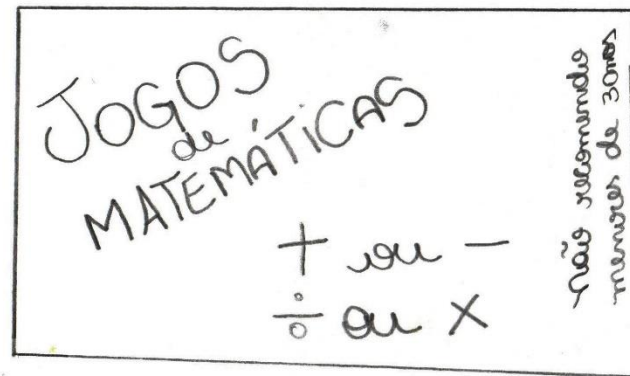 JOGOS
de
MATEMÁTICAS
+ ou -
÷ ou x
Não recomendo
menores de 3 anos